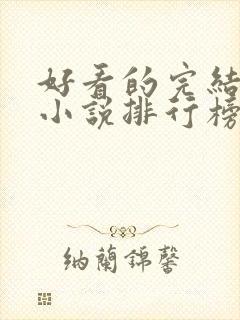 好看的完結
小說排行榜
納蘭錦馨